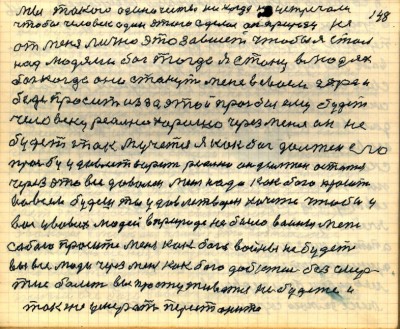 мы такого одиночества никогда не встречали 148
чтобы человек один этого сделал он природу не
от меня лично это зависит чтобы я стал
над людями бог тогда я стану в людях
бог когда они станут меня в своем здра и
беде просить из за этой просьбы ему будет
человеку реально хорошо через меня он не
будет так мучется я как бог должен его
просьбу удовлетворить реально он должен остатся
через это все доволен меня надо как бога просить
во всем будем ты удовлетворен хочте чтобы у
вас у ваших людей в природе не было войны меня
самого просите меня как бога войны не будет
вы все люди через меня как бога добьетесь без смер-
тие болет вы простуживатся не будете и
также умерать перестаните